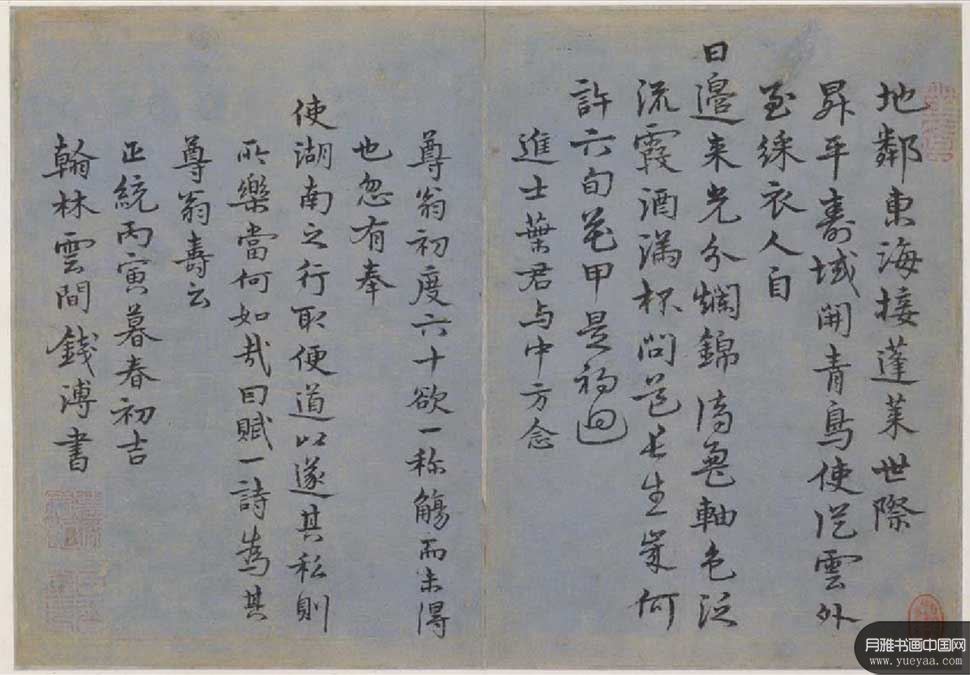 地鄰東海接蓬萊世際
昇平壽域開青鳥使從雲外
至綵衣人自
日邊來光分爛錦
軸色泛
流霞酒滿杯問花長生家何
許六旬花甲是初迴
進士葉君与中方念
尊翁初度六十欲一称觴而未得
也忽有奉
使湖南之行取便道以遂其私則
所樂當何如哉曰賦一詩為其
尊翁壽云
正統丙寅暮春初吉
翰林雲間錢溥書
月雅书画中国网
www.yueyaa.com